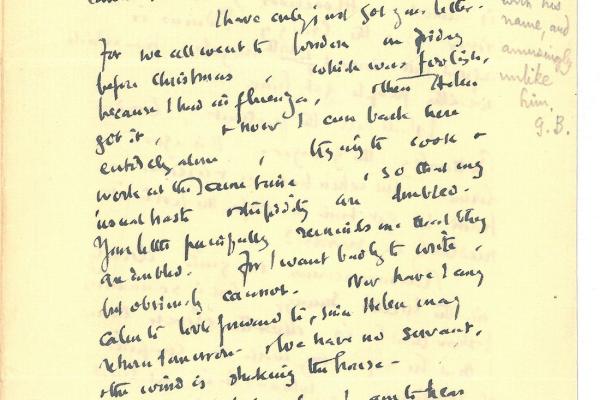 I have only just got your letter.
For we all went to London on Friday
before Christmas, which was foolish,
because I had influenza, then Helen
got it, & now I am back here
entirely alone, trying to cook &
work at the same time, so that my
usual haste & stupidity are doubled.
Your letter painfully reminds me that they
are doubled. For I want badly to write,
but obviously cannot. Nor have I any
calm to look forward to, since Helen may
return tomorrow. & we have no servant,
& the wind is shaking the house.
to hear
with his
name, and
amusingly
unlike
him.
G.B.